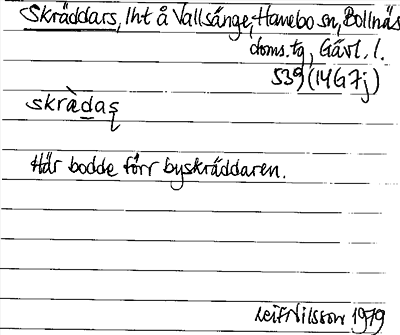 Skräddars, lht å Vallsänge, Hanebo sn, Bollnäs
doms. tg, Gävl. l.
539 (14G7j)
skrädas
Här bodde förr byskräddaren.
Leif Nilsson 1979